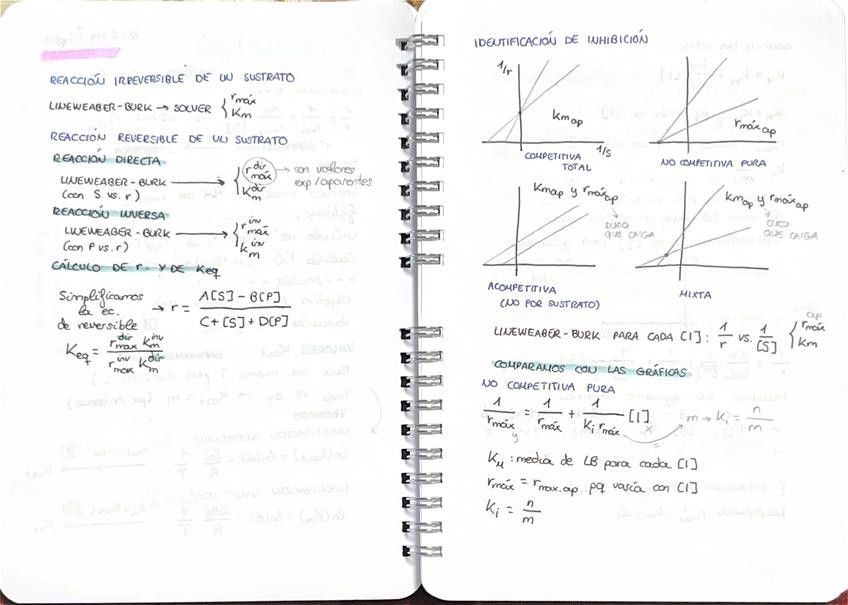 REACCIÓN IRREVERSIBLE DE UN SUSTRATO
LINEWEABER-BURK → SOLVER { rmáx
Km
REACCIÓN REVERSIBLE DE UN SUSTRATO
REACCIÓN DIRECTA
LINEWEABER-BURK → { r dir máx → son valores
(con S vs. r) K dir m exp/aparentes
REACCIÓN INVERSA
LINEWEABER-BURK → { r inv máx
(con P vs. r) K inv m
CÁLCULO DE r Y DE Keq
Simplificamos
la ec. → r = A[S] - B[P] / C + [S] + D[P]
de reversible
Keq = r dir max K inv m / r inv max K dir m
IDENTIFICACIÓN DE INHIBICIÓN
1/r
Kmap
1/S
COMPETITIVA
TOTAL
rmáxap
NO COMPETITIVA PURA
Kmap y rmáxap
DUDO
QUE CAIGA
ACOMPETITIVA
(NO POR SUSTRATO)
Kmap y rmáxap
DUDO
QUE CAIGA
MIXTA
LINEWEABER-BURK PARA CADA [I]: 1/r vs. 1/[S] { rmáx ap
Km
COMPARAMOS CON LAS GRÁFICAS
NO COMPETITIVA PURA
1/rmáx = 1/rmáx + 1/Ki·rmáx [I] : m → Ki = n/m =
y x
=
KM : media de LB para cada [I]
rmáx = rmax.ap pq varía con [I]
Ki = n/m